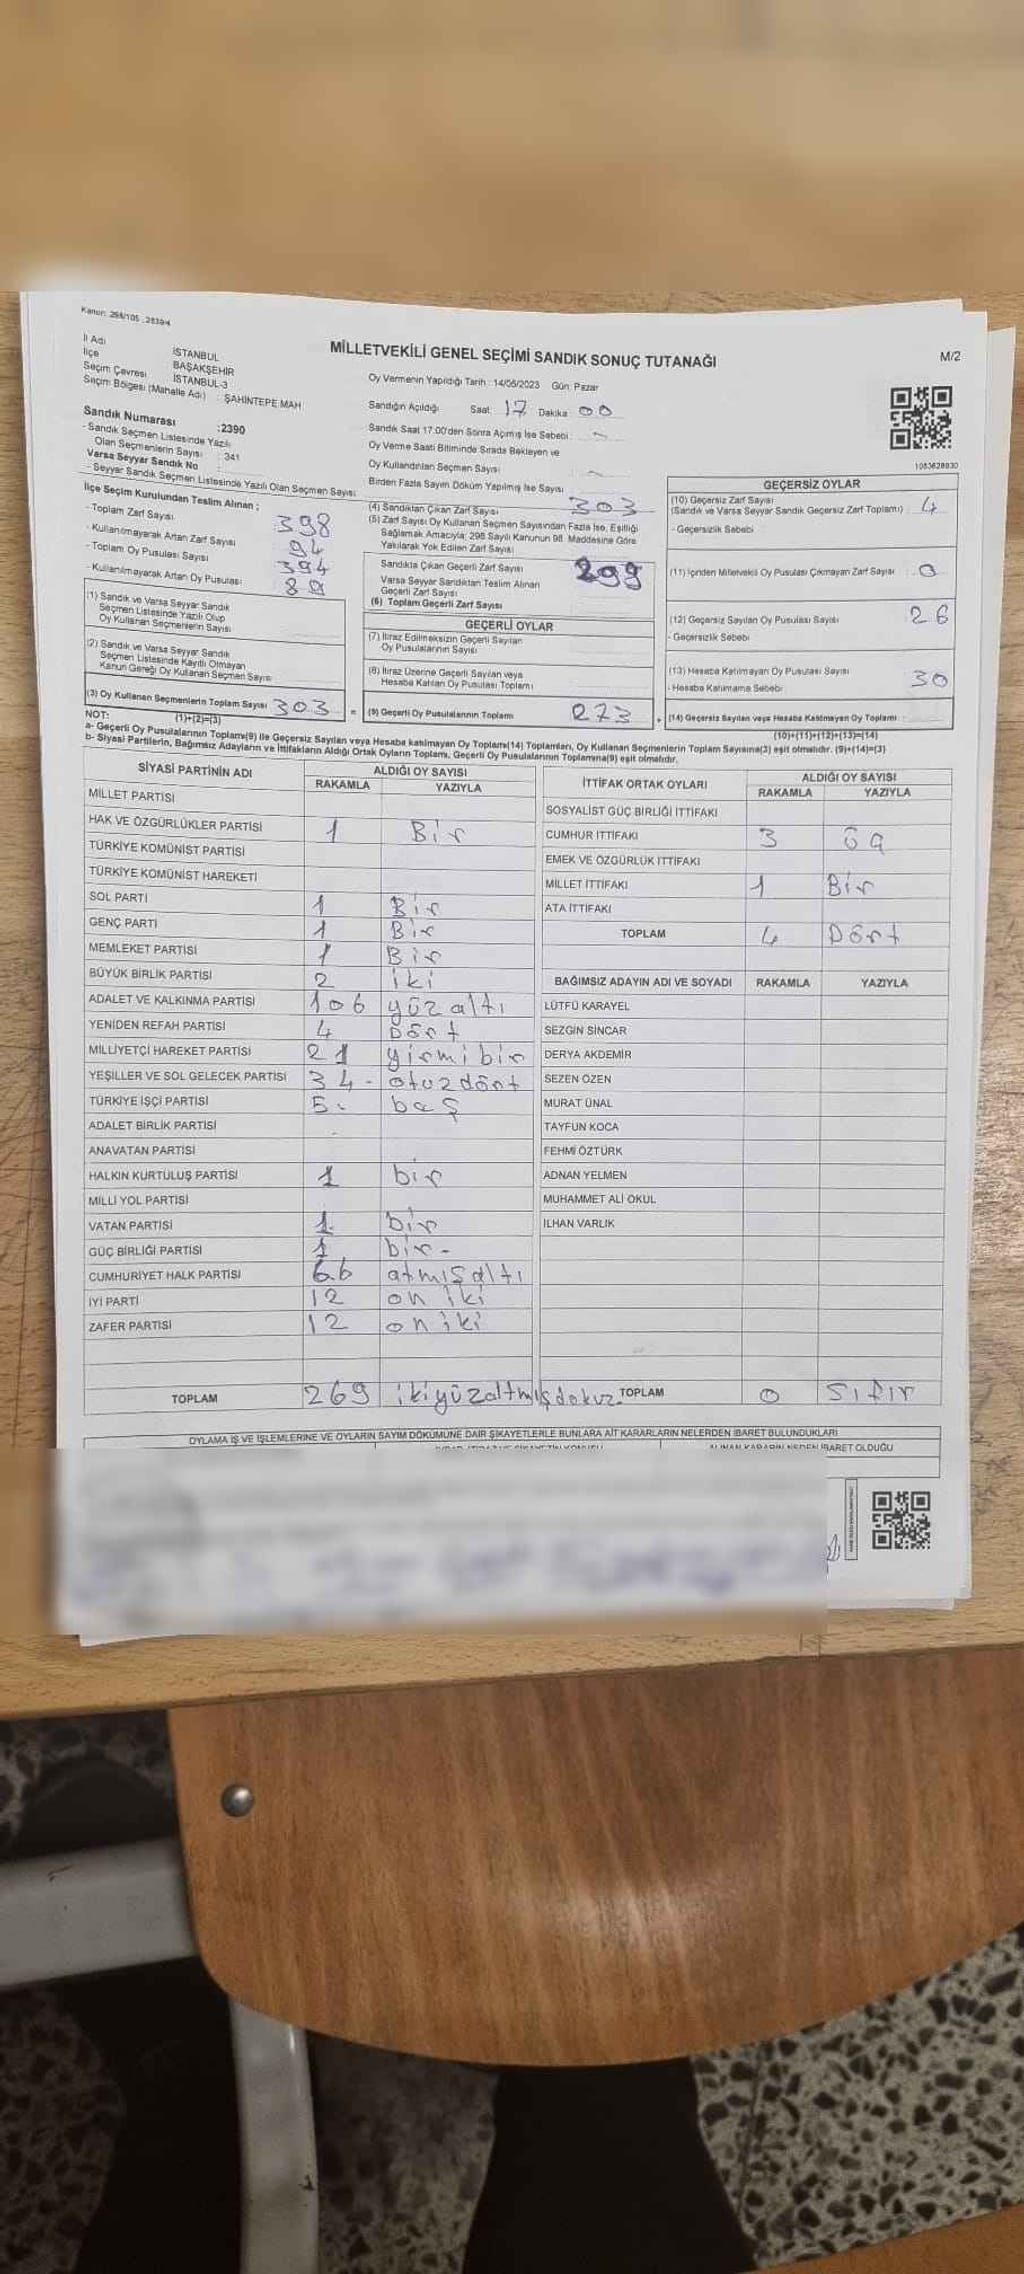 Kanun: 298/105 , 2839/4
MİLLETVEKİLİ GENEL SEÇİMİ SANDIK SONUÇ TUTANAĞI
M/2
İl Adı İSTANBUL
İlçe BAŞAKŞEHİR
Seçim Çevresi İSTANBUL-3
Seçim Bölgesi (Mahalle Adı) : ŞAHİNTEPE MAH
Sandık Numarası :2390
- Sandık Seçmen Listesinde Yazılı
Olan Seçmenlerin Sayısı : 341
Varsa Seyyar Sandık No
- Seyyar Sandık Seçmen Listesinde Yazılı Olan Seçmen Sayısı
Oy Vermenin Yapıldığı Tarih : 14/05/2023 Gün: Pazar
Sandığın Açıldığı Saat: 17 Dakika 00
Sandık Saat 17.00'den Sonra Açılmış İse Sebebi :
Oy Verme Saati Bitiminde Sırada Bekleyen ve
Oy Kullandırılan Seçmen Sayısı
Birden Fazla Sayım Döküm Yapılmış İse Sayısı
1083628930
İlçe Seçim Kurulundan Teslim Alınan ;
- Toplam Zarf Sayısı 398
- Kullanılmayarak Artan Zarf Sayısı 94
- Toplam Oy Pusulası Sayısı 394
- Kullanılmayarak Artan Oy Pusulası
(1) Sandık ve Varsa Seyyar Sandık
Seçmen Listesinde Yazılı Olup
Oy Kullanan Seçmenlerin Sayısı
(2) Sandık ve Varsa Seyyar Sandık
Seçmen Listesinde Kayıtlı Olmayan
Kanun Gereği Oy Kullanan Seçmen Sayısı
(3) Oy Kullanan Seçmenlerin Toplam Sayısı 303
(1)+(2)=(3)
(4) Sandıktan Çıkan Zarf Sayısı 303
(5) Zarf Sayısı Oy Kullanan Seçmen Sayısından Fazla İse, Eşitliği
Sağlamak Amacıyla; 298 Sayılı Kanunun 98. Maddesine Göre
Yakılarak Yok Edilen Zarf Sayısı
Sandıkta Çıkan Geçerli Zarf Sayısı 299
Varsa Seyyar Sandıktan Teslim Alınan
Geçerli Zarf Sayısı
(6) Toplam Geçerli Zarf Sayısı
GEÇERLİ OYLAR
(7) İtiraz Edilmeksizin Geçerli Sayılan
Oy Pusulalarının Sayısı
(8) İtiraz Üzerine Geçerli Sayılan veya
Hesaba Katılan Oy Pusulası Toplamı
= (9) Geçerli Oy Pusulalarının Toplamı 273 +
GEÇERSİZ OYLAR
(10) Geçersiz Zarf Sayısı
(Sandık ve Varsa Seyyar Sandık Geçersiz Zarf Toplamı) 4
- Geçersizlik Sebebi
(11) İçinden Milletvekili Oy Pusulası Çıkmayan Zarf Sayısı 0
(12) Geçersiz Sayılan Oy Pusulası Sayısı 26
- Geçersizlik Sebebi
(13) Hesaba Katılmayan Oy Pusulası Sayısı 30
- Hesaba Katılmama Sebebi
(14) Geçersiz Sayılan veya Hesaba Katılmayan Oy Toplamı
(10)+(11)+(12)+(13)=(14)
NOT:
a- Geçerli Oy Pusulalarının Toplamı(9) ile Geçersiz Sayılan veya Hesaba katılmayan Oy Toplamı(14) Toplamları, Oy Kullanan Seçmenlerin Toplam Sayısına(3) eşit olmalıdır. (9)+(14)=(3)
b- Siyasi Partilerin, Bağımsız Adayların ve İttifakların Aldığı Ortak Oyların Toplamı, Geçerli Oy Pusulalarının Toplamına(9) eşit olmalıdır.
SİYASİ PARTİNİN ADI ALDIĞI OY SAYISI
RAKAMLA YAZIYLA
MİLLET PARTİSİ
HAK VE ÖZGÜRLÜKLER PARTİSİ 1 Bir
TÜRKİYE KOMÜNİST PARTİSİ
TÜRKİYE KOMÜNİST HAREKETİ
SOL PARTİ 1 Bir
GENÇ PARTİ 1 Bir
MEMLEKET PARTİSİ 1 Bir
BÜYÜK BİRLİK PARTİSİ 2 iki
ADALET VE KALKINMA PARTİSİ 106 yüz altı
YENİDEN REFAH PARTİSİ 4 Dört
MİLLİYETÇİ HAREKET PARTİSİ 21 yirmi bir
YEŞİLLER VE SOL GELECEK PARTİSİ 34 - otuzdört
TÜRKİYE İŞÇİ PARTİSİ 5. beş
ADALET BİRLİK PARTİSİ
ANAVATAN PARTİSİ
HALKIN KURTULUŞ PARTİSİ 1 bir
MİLLİ YOL PARTİSİ
VATAN PARTİSİ 1 bir
GÜÇ BİRLİĞİ PARTİSİ 1 bir -
CUMHURİYET HALK PARTİSİ 66 atmışaltı
İYİ PARTİ 12 on iki
ZAFER PARTİSİ 12 on iki
TOPLAM 269 ikiyüzaltmışdokuz
İTTİFAK ORTAK OYLARI ALDIĞI OY SAYISI
RAKAMLA YAZIYLA
SOSYALİST GÜÇ BİRLİĞİ İTTİFAKI
CUMHUR İTTİFAKI 3
EMEK VE ÖZGÜRLÜK İTTİFAKI
MİLLET İTTİFAKI 1 Bir
ATA İTTİFAKI
TOPLAM 4 Dört
BAĞIMSIZ ADAYIN ADI VE SOYADI RAKAMLA YAZIYLA
LÜTFÜ KARAYEL
SEZGİN SİNCAR
DERYA AKDEMİR
SEZEN ÖZEN
MURAT ÜNAL
TAYFUN KOCA
FEHMİ ÖZTÜRK
ADNAN YELMEN
MUHAMMET ALİ OKUL
İLHAN VARLIK
TOPLAM 0 Sıfır
OYLAMA İŞ VE İŞLEMLERİNE VE OYLARIN SAYIM DÖKÜMÜNE DAİR ŞİKAYETLERLE BUNLARA AİT KARARLARIN NELERDEN İBARET BULUNDUKLARI
ALINAN KARARIN NEDEN İBARET OLDUĞU